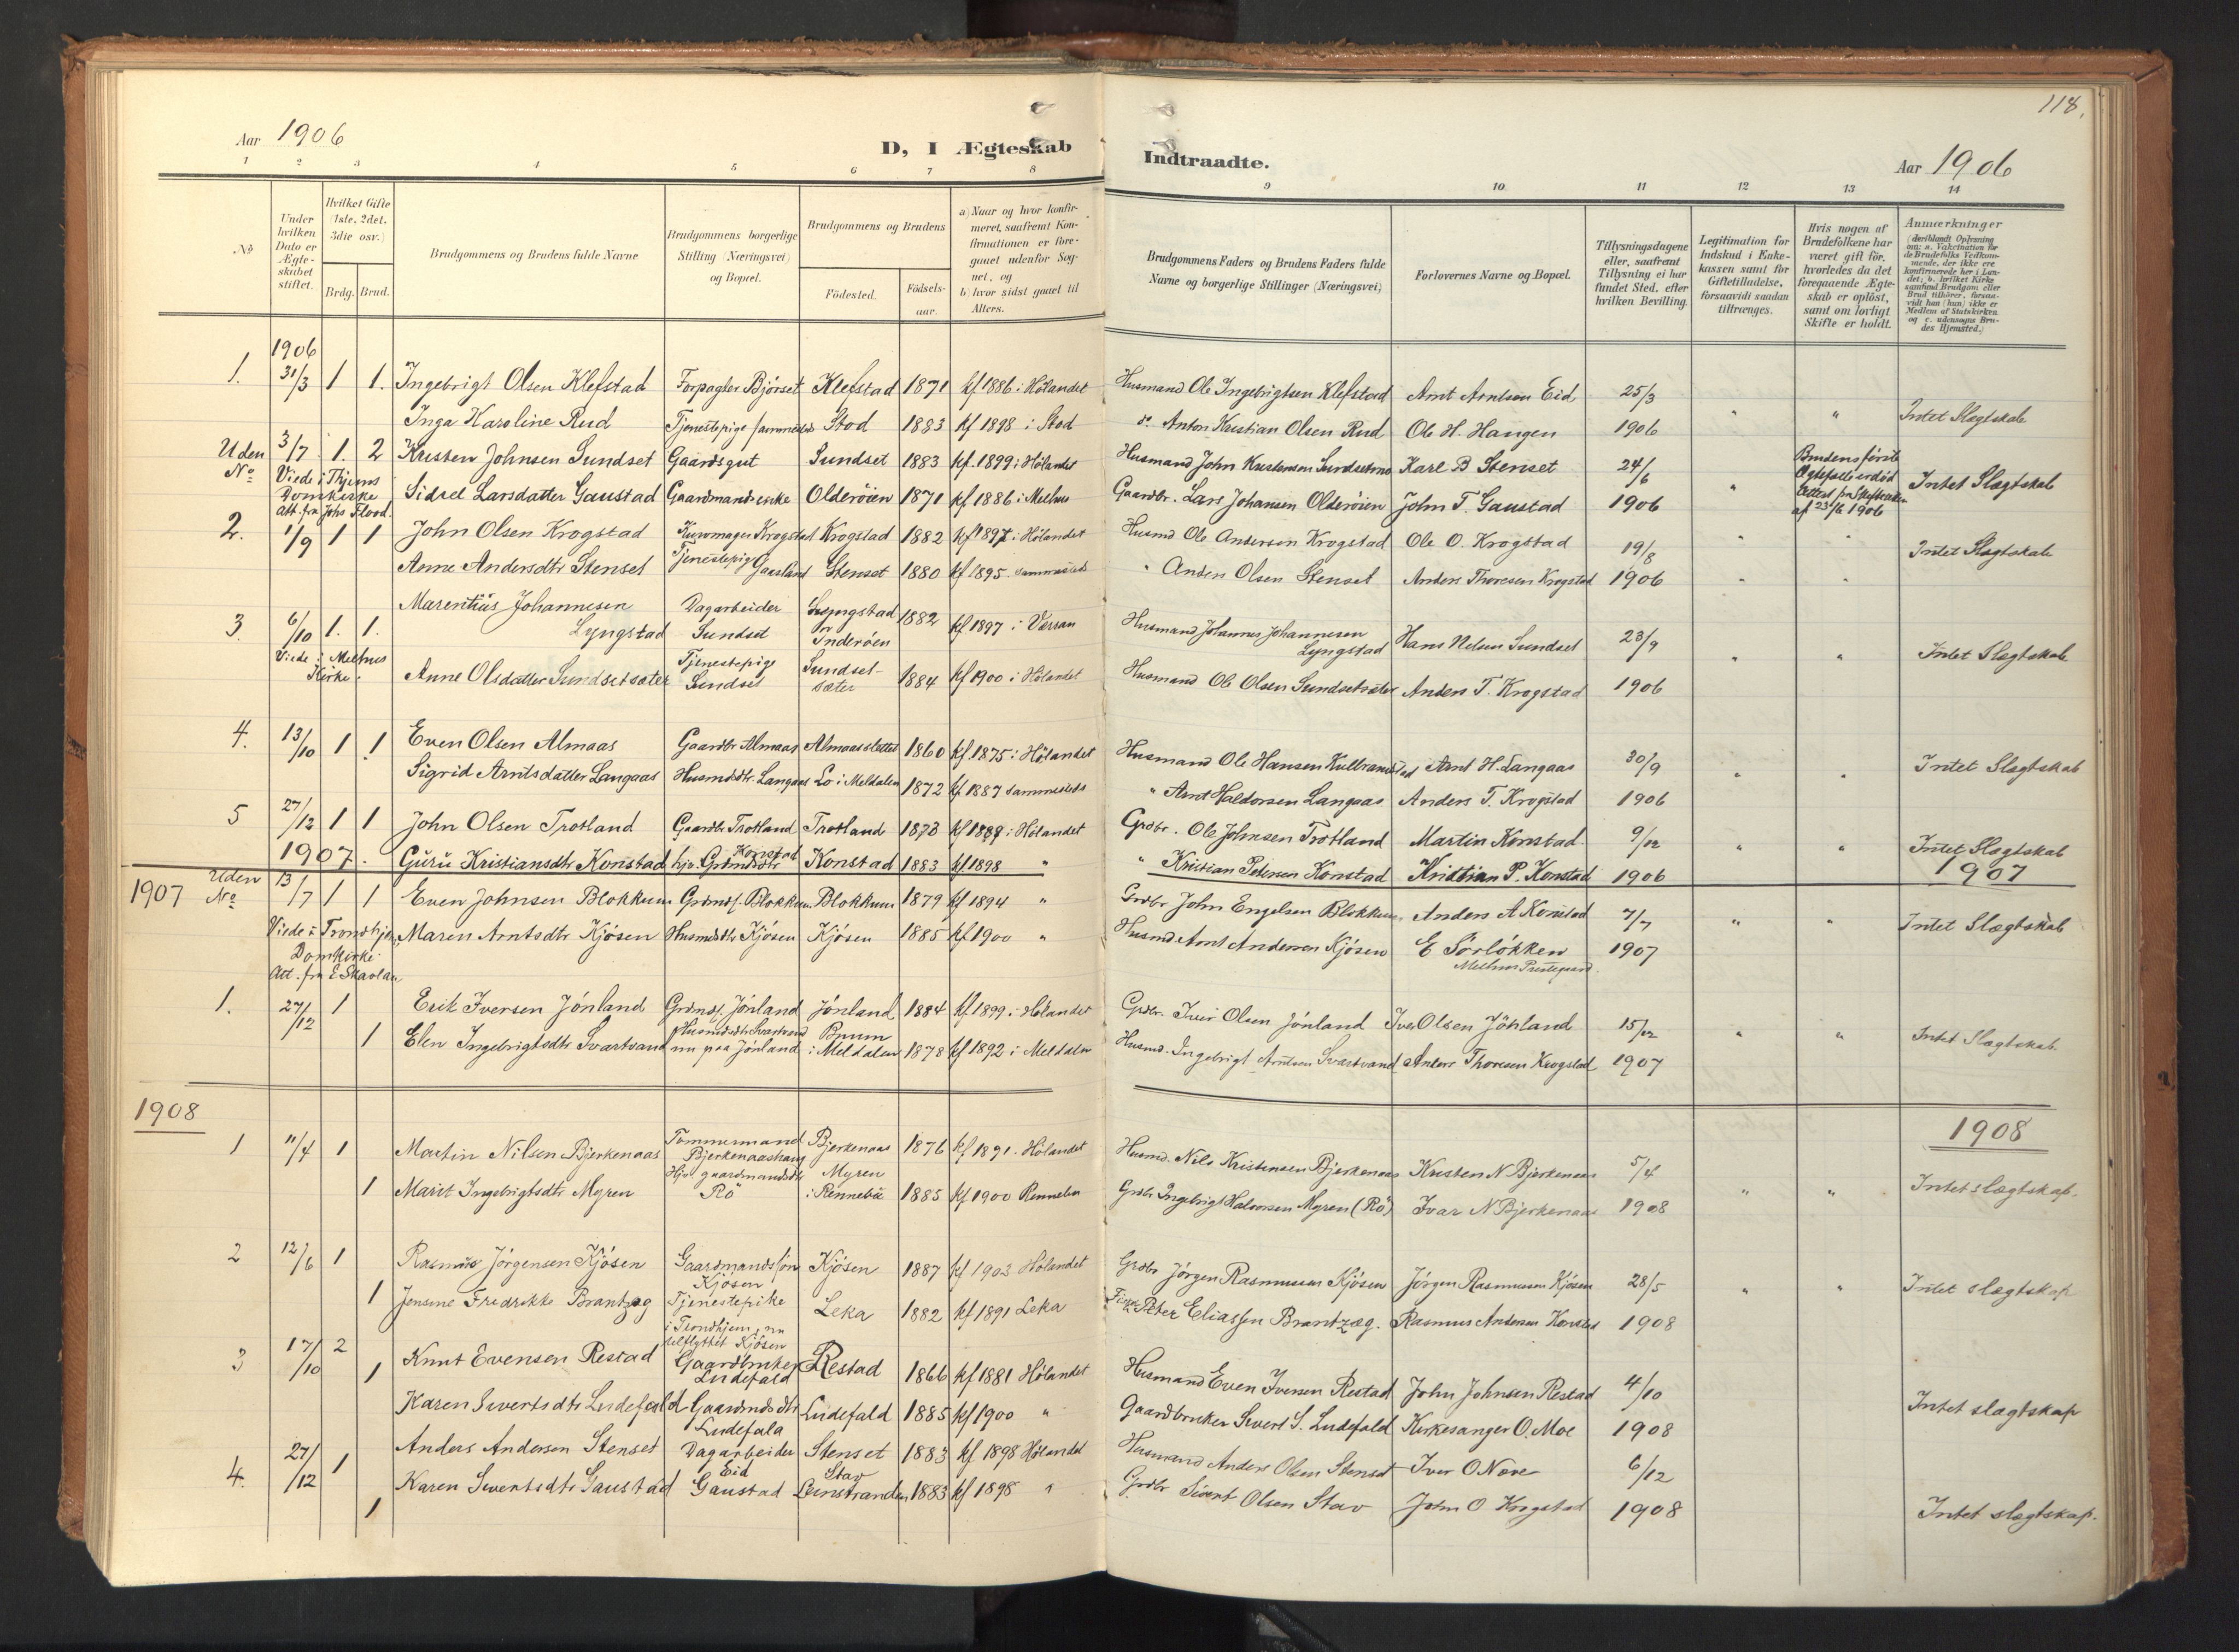 118.
Aar 1906
D, I Ægteskab
Indtraadte.
Aar 1906
1 2 3 4 5 6 7 8
9 10 11 12 13 14
No
Under hvilken Dato er Ægteskabet stiftet.
Hvilket Gifte (1ste, 2det, 3die osv.)
Brdg. Brud.
Brudgommens og Brudens fulde Navne
Brudgommens borgerlige Stilling (Næringsvei) og Bopæl.
Brudgommens og Brudens
Fødested. Fødselsaar.
a) Naar og hvor konfirmeret, saafremt Konfirmationen er foregaaet udenfor Sognet, og
b) hvor sidst gaaet til Alters.
Brudgommens Faders og Brudens Faders fulde Navne og borgerlige Stillinger (Næringsvei)
Forlovernes Navne og Bopæl.
Tillysningsdagene eller, saafremt Tillysning ei har fundet Sted, efter hvilken Bevilling.
Legitimation for Indskud i Enkekassen samt for Giftetilladelse, forsaavidt saadan tiltrænges.
Hvis nogen af Brudefolkene har været gift før, hvorledes da det foregaaende Ægteskab er opløst, samt om lovligt Skifte er holdt.
Anmærkninger
(deriblandt Oplysning om: a. Vakcination for de Brudefolks Vedkommende, der ikke ere konfirmerede her i Landet; b. hvilket Kirkesamfund Brudgom eller Brud tilhører, forsaavidt han (hun) ikke er Medlem af Statskirken og c. udensogns Brudes Hjemsted.)
1906
1. 31/3 1 1. Ingebrigt Olsen Klefstad Forpagter Bjørset Klefstad 1871 kf 1886 i Hølandet Husmand Ole Ingebrigtsen Klefstad Arnt Arntsen Eid 25/3
Inga Karoline Rud Tjenestepige sammesteds Stod 1883 kf 1898 i Stod do Anton Kristian Olsen Rud Ole H. Haugen 1906 " " Intet Slægtskab
Uden No 3/7 1. 2 Kristen Johnsen Sundset Gaardsgut Sundset 1883 kf. 1899 i Hølandet Husmand John Kristensen Karl B Stenset 24/6
Viede i Thjems Domkirke Att. fra Johs Flood. Sidsel Larsdatter Gaustad Gaardmandsenke Olderøien 1871 kf 1886 i Melhus Gaardbr. Lars Johansen Olderøien John T. Gaustad 1906 " Brudens første Ægtefælle er død af 23/6 1906 Intet Slægtskab
2. 1/9 1 1 John Olsen Krogstad Krogstad Krogstad 1882 kf 1897 i Hølandet Husmd Ole Andersen Krogstad Ole O. Krogstad 19/8 " "
Anne Andersdtr Stenset Tjenestepig Gaasland Stenset 1880 kf 1895. sammesteds " Anders Olsen Stenset Anders Thoresen Krogstad 1906 " " Intet Slægtskab
3. 6/10 1. 1. Marentius Johannesen Lyngstad Dagarbeider Sundset Lyngstad Inderøen 1882 kf 1897 i Værran Husmand Johannes Johannesen Lyngstad Hans Nelsen Sundset 23/9
Viede i Melhus Kirke. Anne Olsdatter Sundsetsæter Tjenestepige Sundset Sundset-sæter 1884 kf 1900 i Hølandet Husmand Ole Olsen Sundsetsæter Anders T. Krogstad 1906 " " Intet Slægtskab
4. 13/10 1 1 Even Olsen Almaas Gaardbr Almaas Almaassletten 1860 kf 1875 i Hølandet Husmand Ole Hansen Arnt H. Langaas 30/9
Sigrid Arntsdatter Langaas Husmdsdtr. Langaas Lo i Meldalen 1872 kf 1887 sammesteds " Arnt Haldorsen Langaas Anders T. Krogstad 1906 " " Intet Slægtskab
5 27/12 1 1 John Olsen Trotland Gaardbr Trotland Trotland 1873 kf 1887 i Hølandet Grdbr. Ole Johnsen Trotland Martin Konstad. 9/12
Guru Kristiansdtr Konstad hjv. Grdmdsdtr Konstad Konstad 1883 kf. 1898 " " Kristian Petersen Konstad Kristian P. Konstad 1906 " " Intet Slægtskab
1907. 1907 1907
Uden No 13/7 1 1 Even Johnsen Blokkum Grdmds. Blokkum Blokkum 1879 kf 1894 " Grdbr John Engelsen Blokkum Anders A Konstad 7/7
Viede i Trondhjem Domkirke Att. fra E Skavlan Maren Arntsdtr Kjøsen Husmdsdtr Kjøsen Kjøsen 1885 kf 1900 " Husmd Arnt Andersen Kjøsen E Sørløkken Melhus Prestegaard. 1907 " " Intet Slægtskab
1. 27/12 1 Erik Iversen Jønland Grdmds. Jønland Jønland 1884 kf. 1899 i Hølandet Grdbr. Iver Olsen Jønland Iver Olsen Jønland 15/12
1 Elen Ingebrigtsdtr Svartvand Husmdsdtr Svartvand nu paa Jønland i Meldalen 1878 kf 1892 i Meldalen Husmd. Ingebrigt Arntsen Svartvand Anders Thoresen Krogstad 1907 " " Intet Slægtskab.
1908 1908
1 11/4 1 Martin Nilsen Bjerkenaas Tømmermand Bjerkenaashaug Bjerkenaas 1876 kf 1891. Hølandet Husmd. Nils Kristensen Bjerkenaas Kristen N Bjerkenaas 5/4
1 Marit Ingebrigtsdtr Myren Hjv gaardmandsdtr Rø Myren i Rennebu 1885 kf 1900 Rennebu Grdbr Ingebrigt Halvorsen Myren (Rø) Ivar N Bjerkenaas 1908 " " Intet slægtskap.
2 12/6 1 Rasmus Jørgensen Kjøsen Gaardmandssøn Kjøsen Kjøsen 1887 kf 1903 Hølandet Grdbr Jørgen Rasmussen Kjøsen Jørgen Rasmussen Kjøsen 28/5
1 Jensine Fredrikke Brantzæg Tjenestepike i Trondhjem, nu Kjøsen Leka 1882 kf 1891 Leka Peter Eliassen Brantzæg. Rasmus Andersen Konstad 1908 " " Intet slægtskap
3 17/10 2 Knut Evensen Restad Gaardbruker Ludefald Restad 1866 kf 1881 Hølandet Husmand Even Iversen Restad John Johnsen Restad 4/10
1 Karen Sivertsdtr Ludefald Gaardmdsdtr Ludefald Ludefald 1885 kf 1900 " Gaardbruker Sivert S. Ludefald Kirkesanger O. Moe 1908 Intet slægtskap
4. 27/12 1 Anders Andersen Stenset Dagarbeider Eid Stenset 1883 kf. 1898 Hølandet Husmand Anders Olsen Stenset Iver O Nove 6/12
1 Karen Sivertsdtr Gaustad Gaustad Stav Leinstranden 1883 kf 1898 " Grdbr Sivert Olsen Stav John O Krogstad 1908 Intet slægtskap.